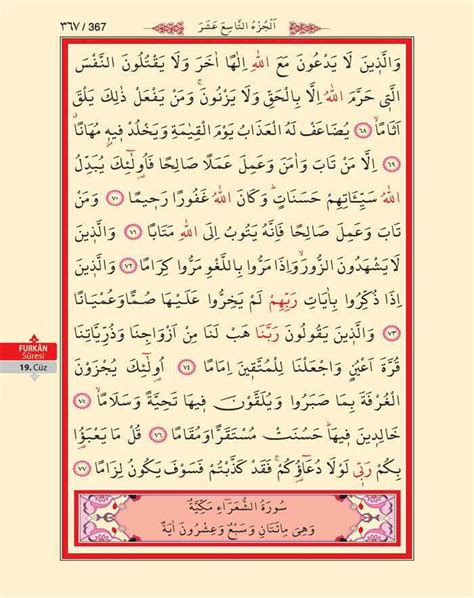 ٣٦٧ / 367
اَلْجُزْءُ التَّاسِعَ عَشَرَ
وَالَّذ۪ينَ لَا يَدْعُونَ مَعَ اللّٰهِ اِلٰهًا اٰخَرَ وَلَا يَقْتُلُونَ النَّفْسَ
الَّت۪ي حَرَّمَ اللّٰهُ اِلَّا بِالْحَقِّ وَلَا يَزْنُونَۚ وَمَنْ يَفْعَلْ ذٰلِكَ يَلْقَ
اَثَامًاۙ ﴿٦٨﴾ يُضَاعَفْ لَهُ الْعَذَابُ يَوْمَ الْقِيٰمَةِ وَيَخْلُدْ ف۪يه۪ مُهَانًاۗ
﴿٦٩﴾ اِلَّا مَنْ تَابَ وَاٰمَنَ وَعَمِلَ عَمَلًا صَالِحًا فَاُو۬لٰٓئِكَ يُبَدِّلُ
اللّٰهُ سَيِّـَٔاتِهِمْ حَسَنَاتٍۜ وَكَانَ اللّٰهُ غَفُورًا رَح۪يمًا ﴿٧٠﴾ وَمَنْ
تَابَ وَعَمِلَ صَالِحًا فَاِنَّهُ يَتُوبُ اِلَى اللّٰهِ مَتَابًا ﴿٧١﴾ وَالَّذ۪ينَ
لَا يَشْهَدُونَ الزُّورَۙ وَاِذَا مَرُّوا بِاللَّغْوِ مَرُّوا كِرَامًا ﴿٧٢﴾ وَالَّذ۪ينَ
اِذَا ذُكِّرُوا بِاٰيَاتِ رَبِّهِمْ لَمْ يَخِرُّوا عَلَيْهَا صُمًّا وَعُمْيَانًا
﴿٧٣﴾ وَالَّذ۪ينَ يَقُولُونَ رَبَّنَا هَبْ لَنَا مِنْ اَزْوَاجِنَا وَذُرِّيَّاتِنَا
قُرَّةَ اَعْيُنٍ وَاجْعَلْنَا لِلْمُتَّق۪ينَ اِمَامًا ﴿٧٤﴾ اُو۬لٰٓئِكَ يُجْزَوْنَ
الْغُرْفَةَ بِمَا صَبَرُوا وَيُلَقَّوْنَ ف۪يهَا تَحِيَّةً وَسَلَامًاۙ ﴿٧٥﴾
خَالِد۪ينَ ف۪يهَاۜ حَسُنَتْ مُسْتَقَرًّا وَمُقَامًا ﴿٧٦﴾ قُلْ مَا يَعْبَؤُ۬ا
بِكُمْ رَبّ۪ي لَوْلَا دُعَٓاؤُ۬كُمْۚ فَقَدْ كَذَّبْتُمْ فَسَوْفَ يَكُونُ لِزَامًا ﴿٧٧﴾
سُورَةُ الشُّعَرَٓاءِ مَكِّيَّةٌ
وَهِيَ مِائَتَانِ وَسَبْعٌ وَعِشْرُونَ اٰيَةً
FURKÂN
Sûresi
19. Cüz